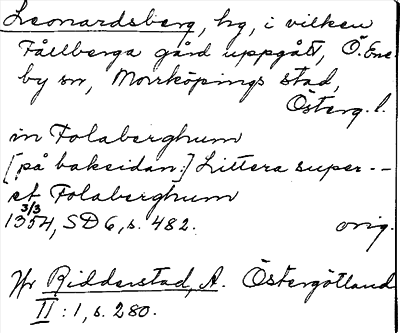 Leonardsberg, hg, i vilken
Fållberga gård uppgått, Ö. Ene-
by sn, Norrköpings stad,
Österg. l.
in Folaberghum
[på baksidan:] Littera super --
et Folaberghum
1354 3/3, SD 6, s. 482. orig.
Jfr Ridderstad, A. Östergötland
II : 1, s. 280.